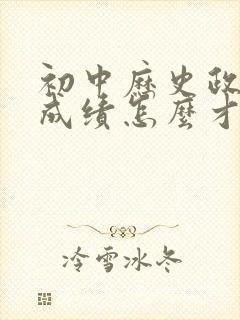 初中历史政
成绩怎麽才
冷雪冰冬